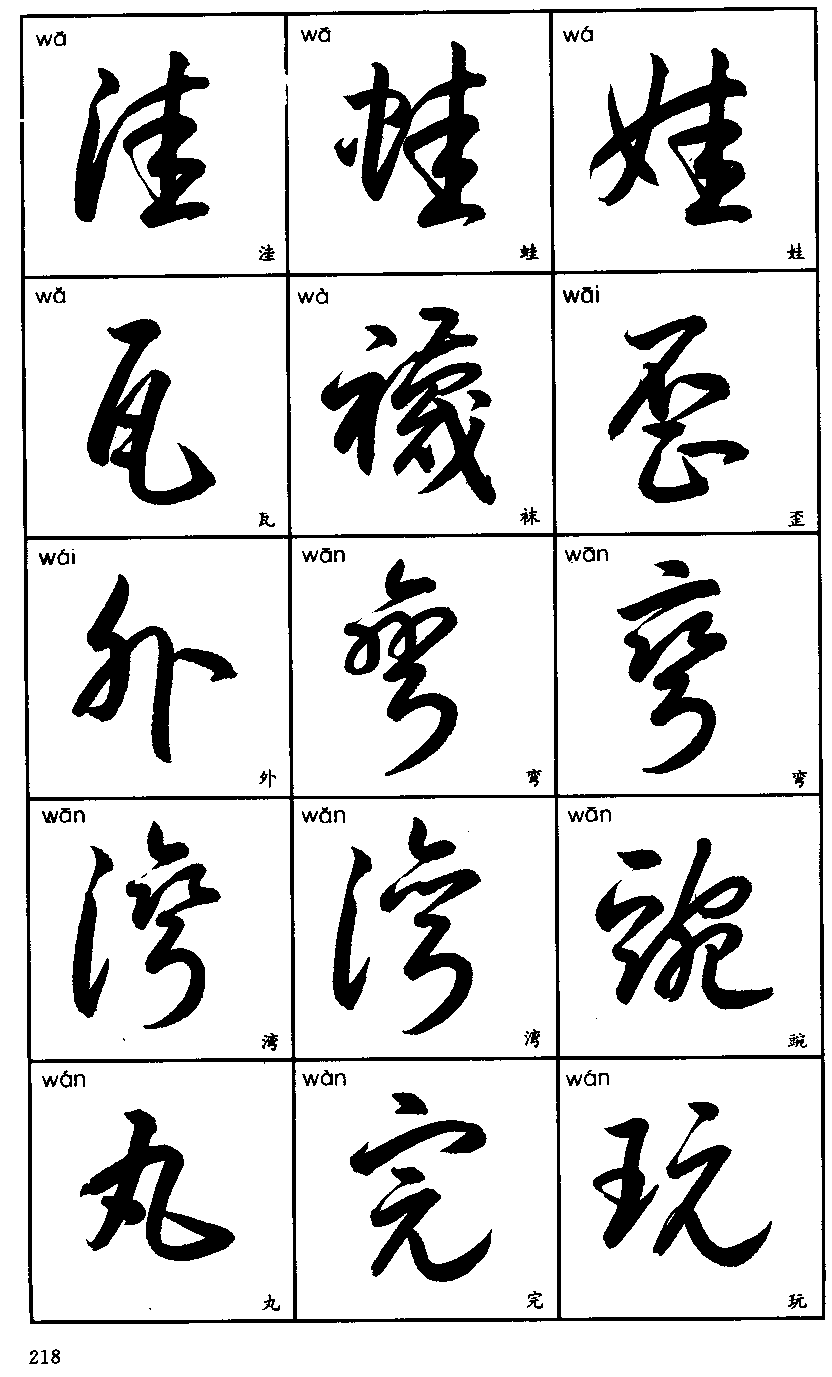 wā wā wá
洼 蛙 娃
洼 蛙 娃
wǎ wà wāi
瓦 襪 歪
瓦 袜 歪
wài wān wān
外 彎 彎
外 弯 弯
wān wān wān
灣 灣 豌
湾 湾 豌
wán wán wán
丸 完 玩
丸 完 玩
218